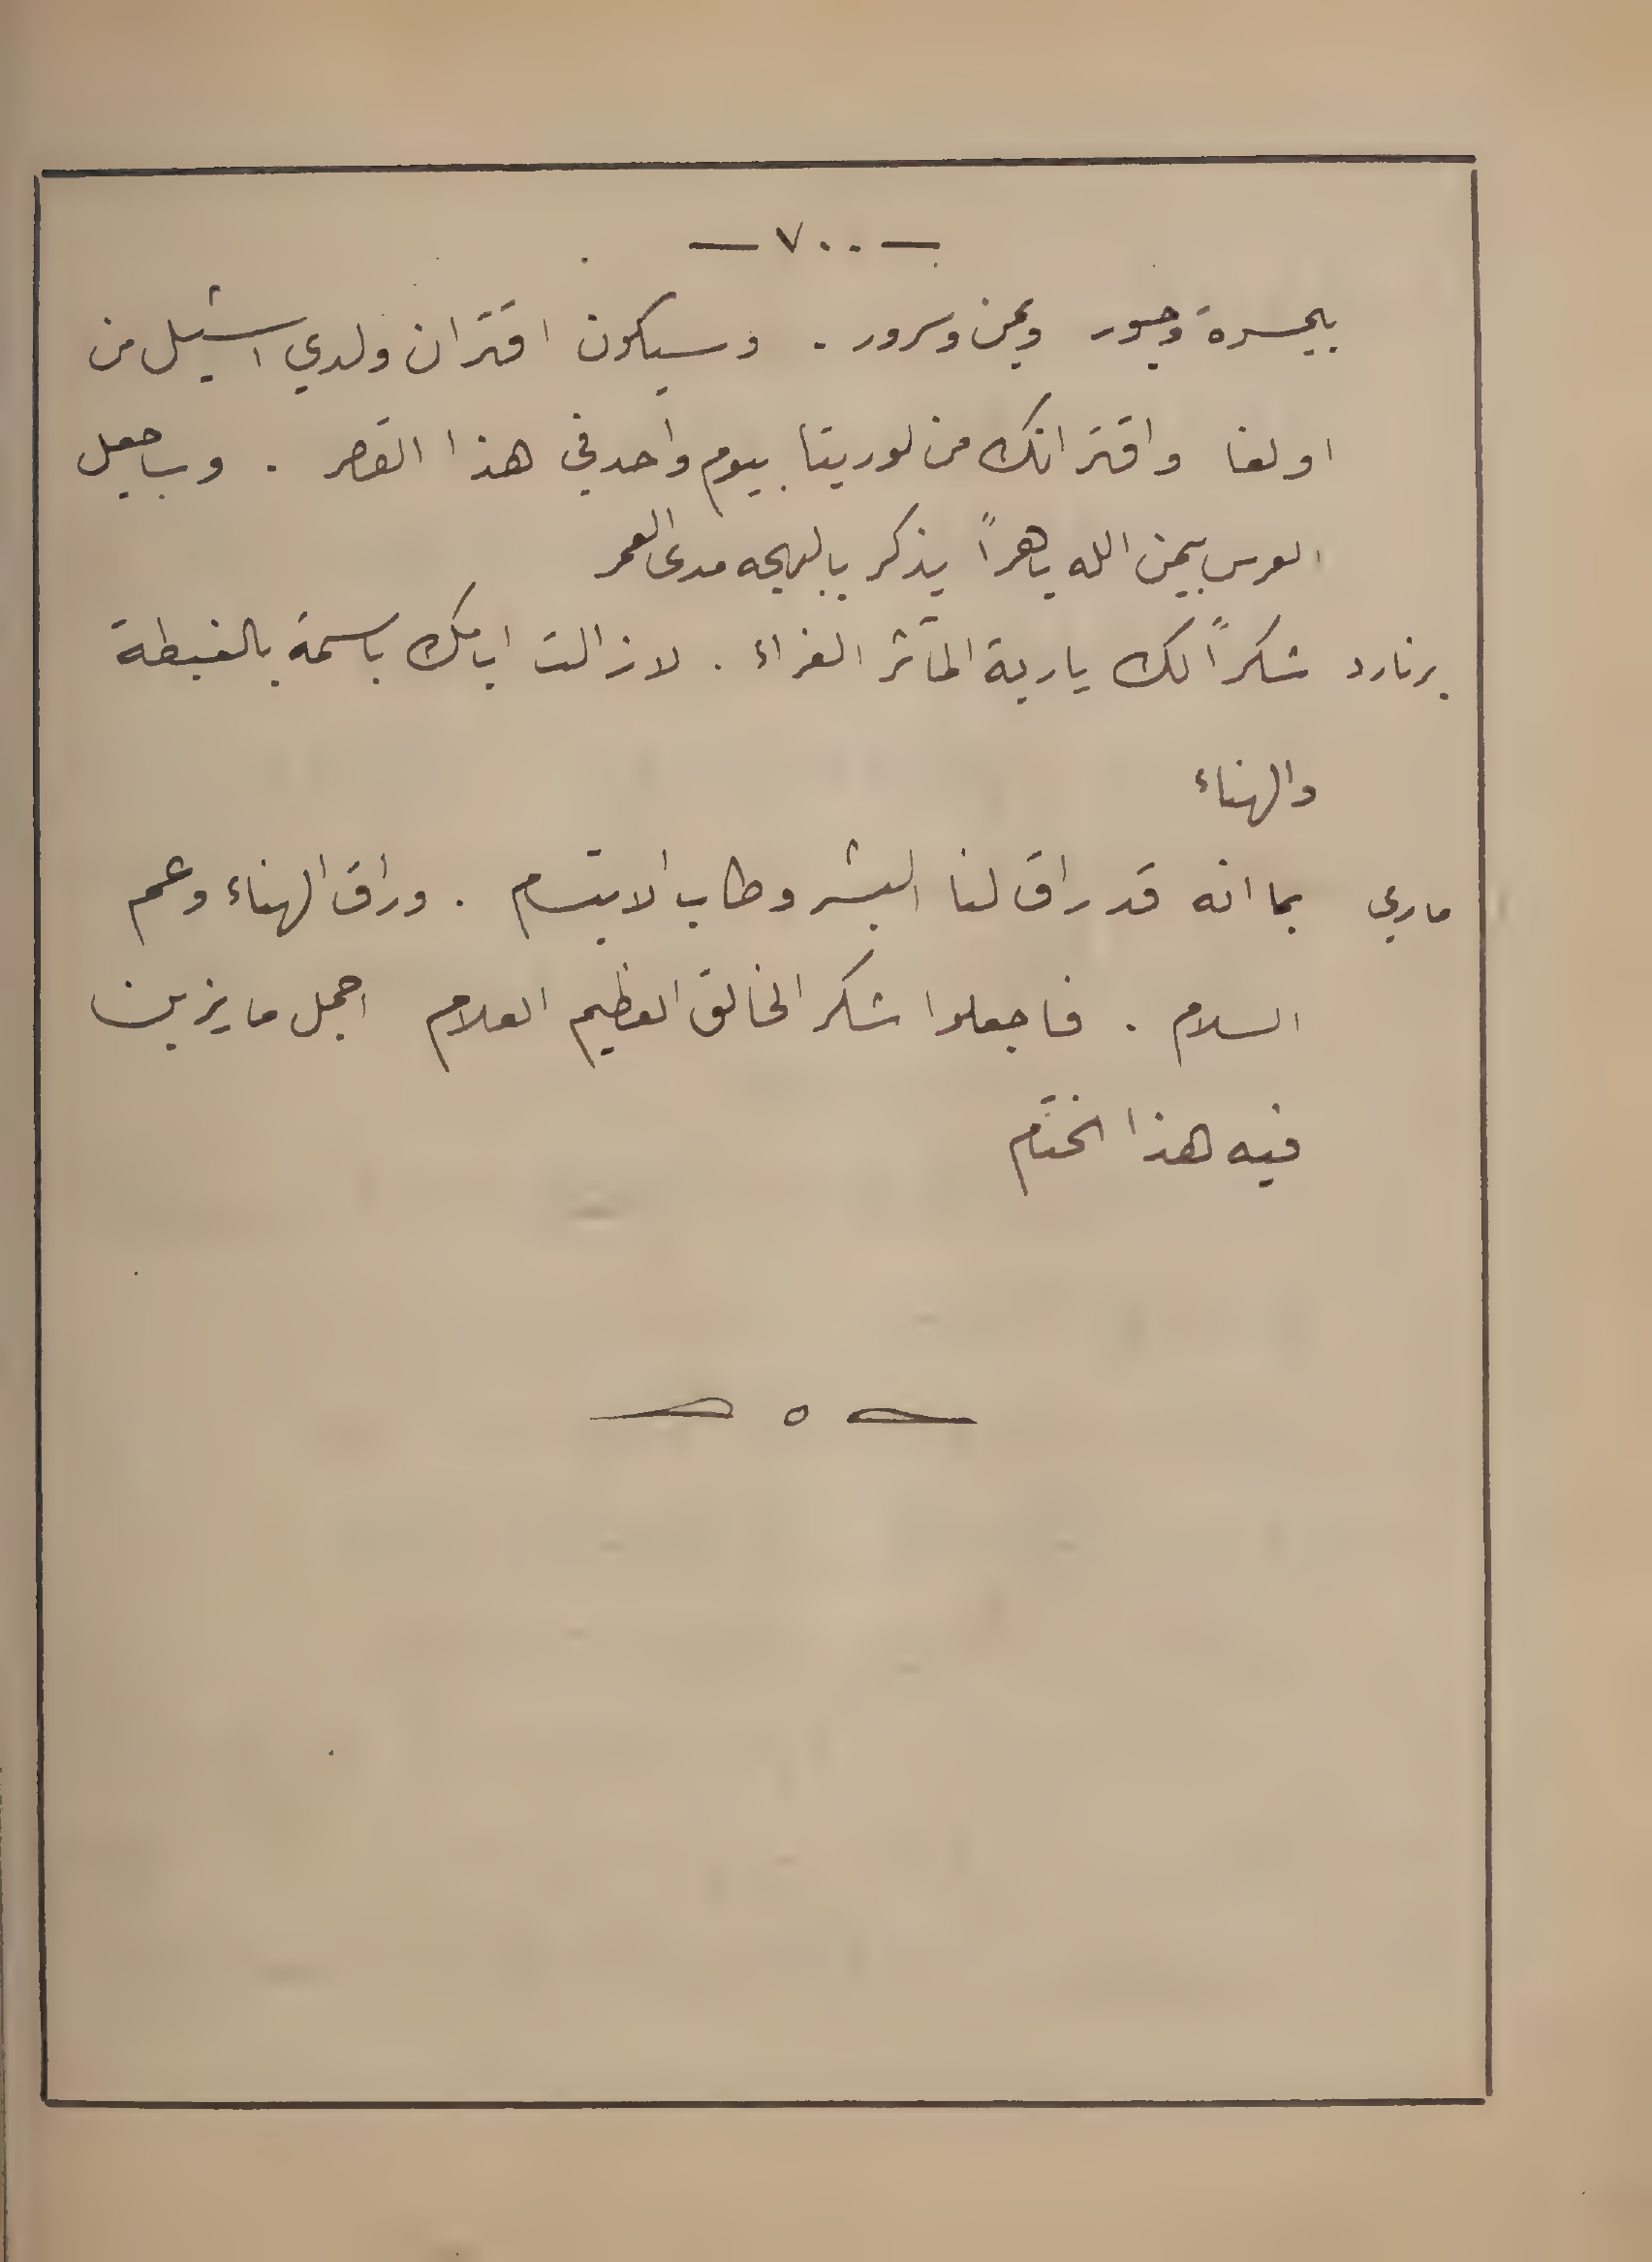 — ٧٠٠ —
بيسرة وحبور ويمن وسرور . وسيكون اقتران ولدي اشيل من
اولغا واقترانك من لوريتا بيوم واحد في هذا القصر . وساجعل
العرس بيمن الله باهراً يذكر بالبهجه مدى العمر
برنارد شكراً لك ياربة المآثر الغراء . لازالت ايامك باسمة بالغبطة
والهناء
ماري بما انه قد راق لنا البشر وطاب الابتسام . وراق الهناء وعم
السلام . فاجعلوا شكر الخالق العظيم العلام اجمل ما يزين
فيه هذا الختام